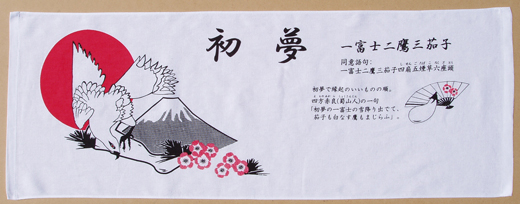 初夢
一富士二鷹三茄子
同意語句:
一富士二鷹三茄子四扇五煙草六座頭
初夢で縁起のいいものの順。
四方赤良(蜀山人)の一句
「初夢の一富士の雪降り出てて、
茄子も白なす鷹もまじらふ」。